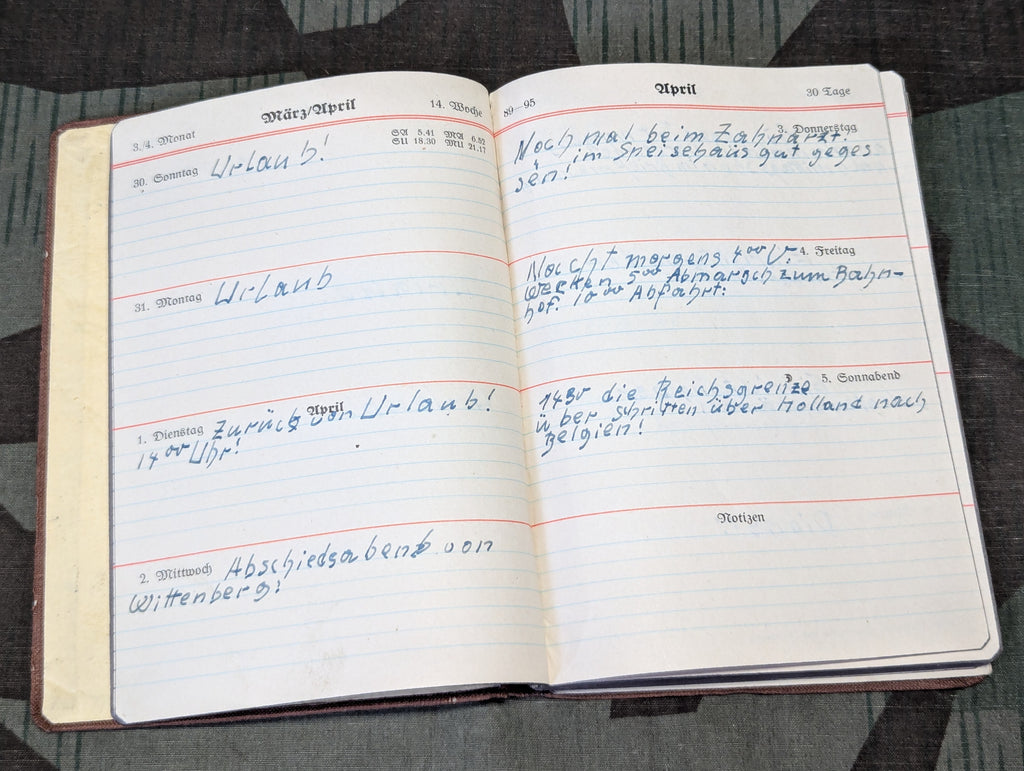 März/April
3./4. Monat
14. Woche
SA 5.41 MA 6.52
SU 18.30 MU 21.17
30. Sonntag Urlaub!
31. Montag Urlaub
April
1. Dienstag Zurück von Urlaub!
14 00 Uhr!
2. Mittwoch Abschiedsabend von
Wittenberg!
89—95
April
30 Tage
3. Donnerstag
Noch mal beim Zahnarzt,
im Speisehaus gut geges
sen!
4. Freitag
Nacht morgens 4 00 U.
Wecken 5 00 Abmarsch zum Bahn-
hof. 10 00 Abfahrt.
5. Sonnabend
14 30 die Reichsgrenze
überschritten über Holland nach
Belgien!
Notizen